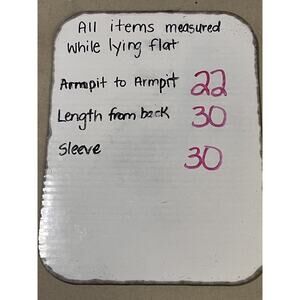 All items measured
while lying flat
Armpit to Armpit 22
Length from back 30
Sleeve 30